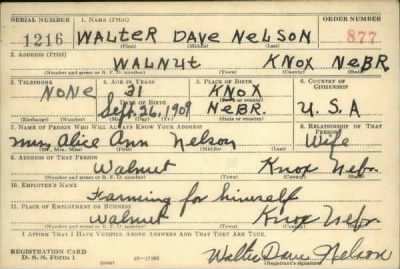 SERIAL NUMBER 1. NAME (Print) ORDER NUMBER
1216 WALTER DAVE NELSON 877
(First) (Middle) (Last)
2. ADDRESS (Print)
WALNUT KNOX NEBR.
(Number and street or R. F. D. number) (Town) (County) (State)
3. TELEPHONE 4. AGE IN YEARS 5. PLACE OF BIRTH 6. COUNTRY OF CITIZENSHIP
NONE 31 KNOX
DATE OF BIRTH (Town or county)
Sept. 26, 1909 NEBR. U.S.A
(Exchange) (Number) (Mo.) (Day) (Yr.) (State or country)
7. NAME OF PERSON WHO WILL ALWAYS KNOW YOUR ADDRESS 8. RELATIONSHIP OF THAT PERSON
Mrs Alice Ann Nelson Wife
(Mr., Mrs., Miss) (First) (Middle) (Last)
9. ADDRESS OF THAT PERSON
Walnut Knox Nebr.
(Number and street or R. F. D. number) (Town) (County) (State)
10. EMPLOYER'S NAME
Farming for himself
11. PLACE OF EMPLOYMENT OR BUSINESS
Walnut Knox Nebr.
(Number and street or R. F. D. number) (Town) (County) (State)
I AFFIRM THAT I HAVE VERIFIED ABOVE ANSWERS AND THAT THEY ARE TRUE.
REGISTRATION CARD
D. S. S. Form 1 Walter Dave Nelson
(Registrant's signature)